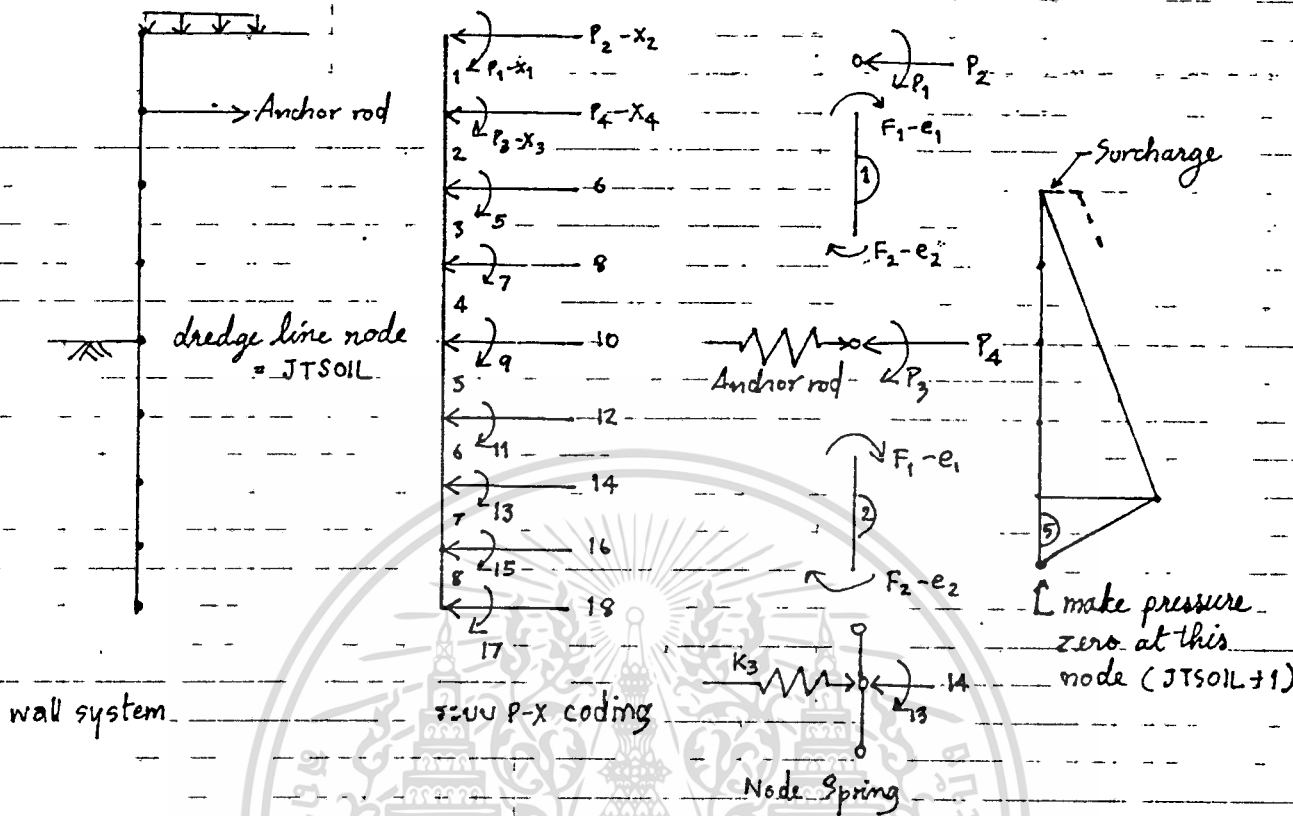 Anchor rod
dredge line node
= JTSOIL
wall system
P₂-X₂
1
P₁-X₁
P₄-X₄
P₃-X₃
2
6
5
3
8
7
4
10
9
5
12
11
6
14
13
7
16
15
8
18
17
ระบบ P-X coding
P₂
P₁
F₁-e₁
1
F₂-e₂
Anchor rod
P₄
P₃
F₁-e₁
2
F₂-e₂
K₃
14
13
Node Spring
Surcharge
5
make pressure
zero at this
node (JTSOIL+1)